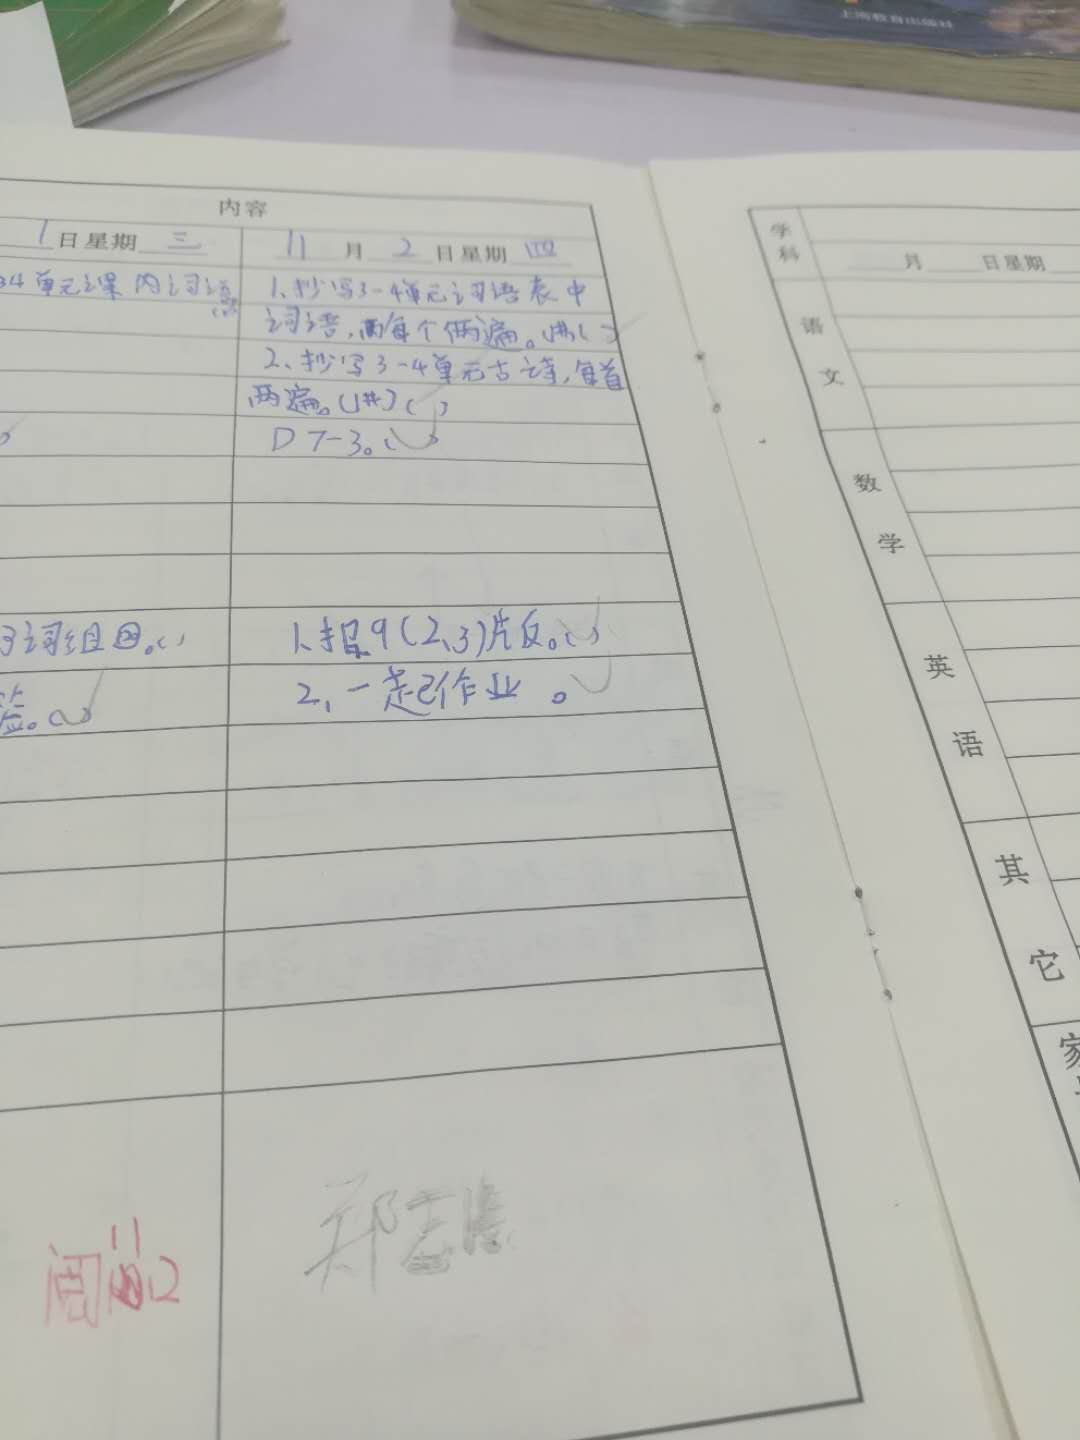 上海教育出版社
内容
1日星期三
11月2日星期四
34单元课内词语
1、抄写3-4单元词语表中
词语,每个两遍。
2、抄写3-4单元古诗,每首
两遍。(1#)( )
D 7-3。( )
词组
1、报9(2、3)片反。( )
2、一起作业。
签。( )
周
郑志
学科
月 日星期
语文
数学
英语
其它
家